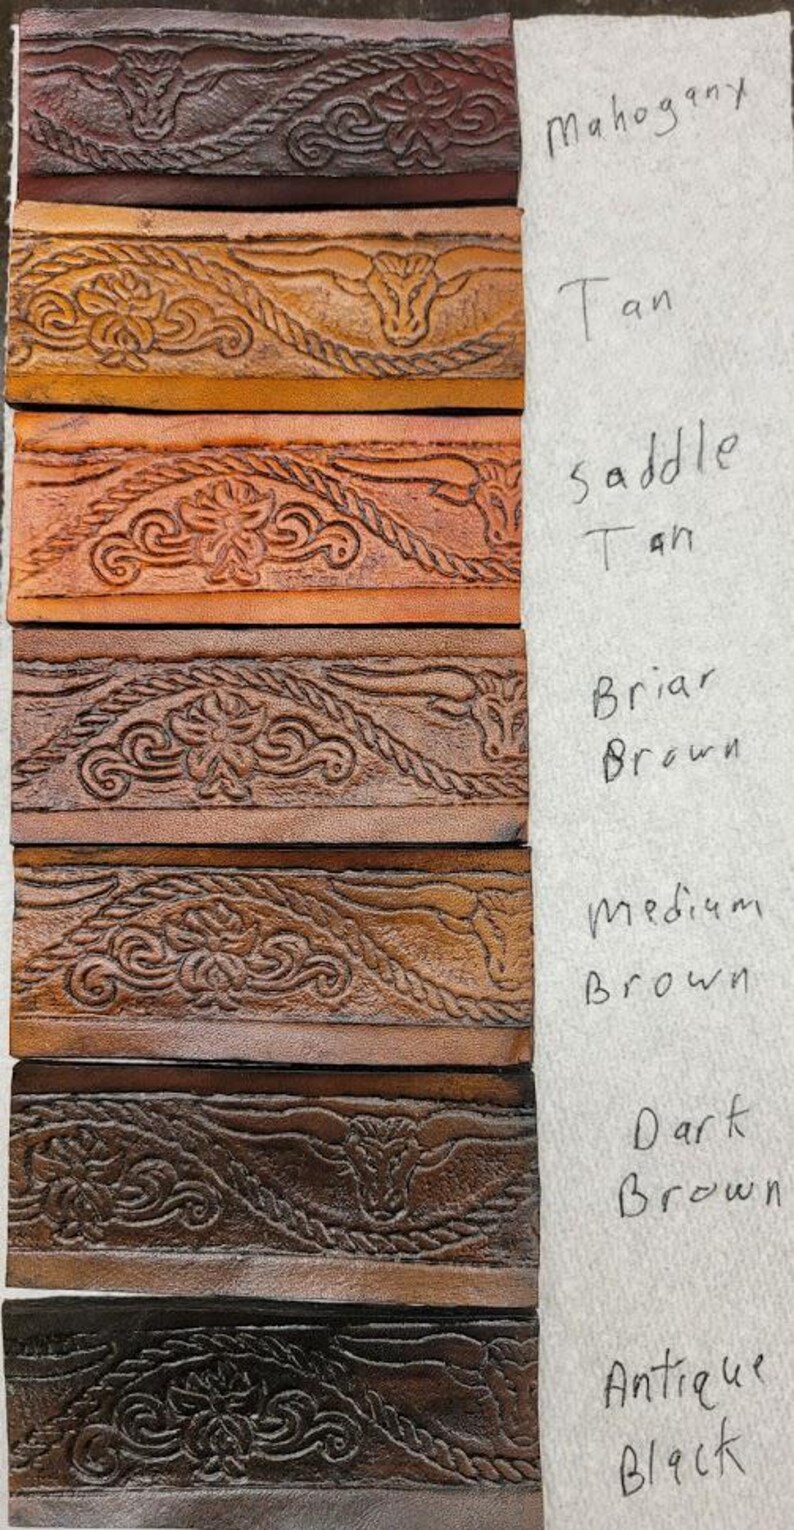 Mahogany
Tan
Saddle
Tan
Briar
Brown
Medium
Brown
Dark
Brown
Antique
Black